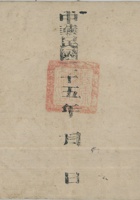 中華民國二十五年 月 日